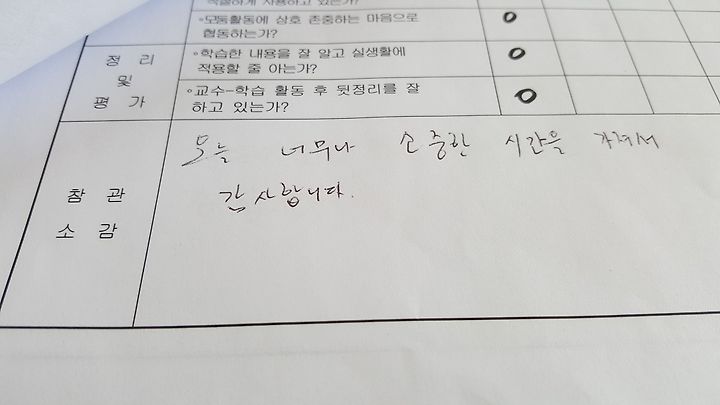 적절하게 사용하고 있는가?
◦모둠활동에 상호 존중하는 마음으로
협동하는가?
정 리
및
평 가
◦학습한 내용을 잘 알고 실생활에
적용할 줄 아는가?
◦교수-학습 활동 후 뒷정리를 잘
하고 있는가?
참 관
소 감
오늘 너무나 소중한 시간을 가져서
감사합니다.